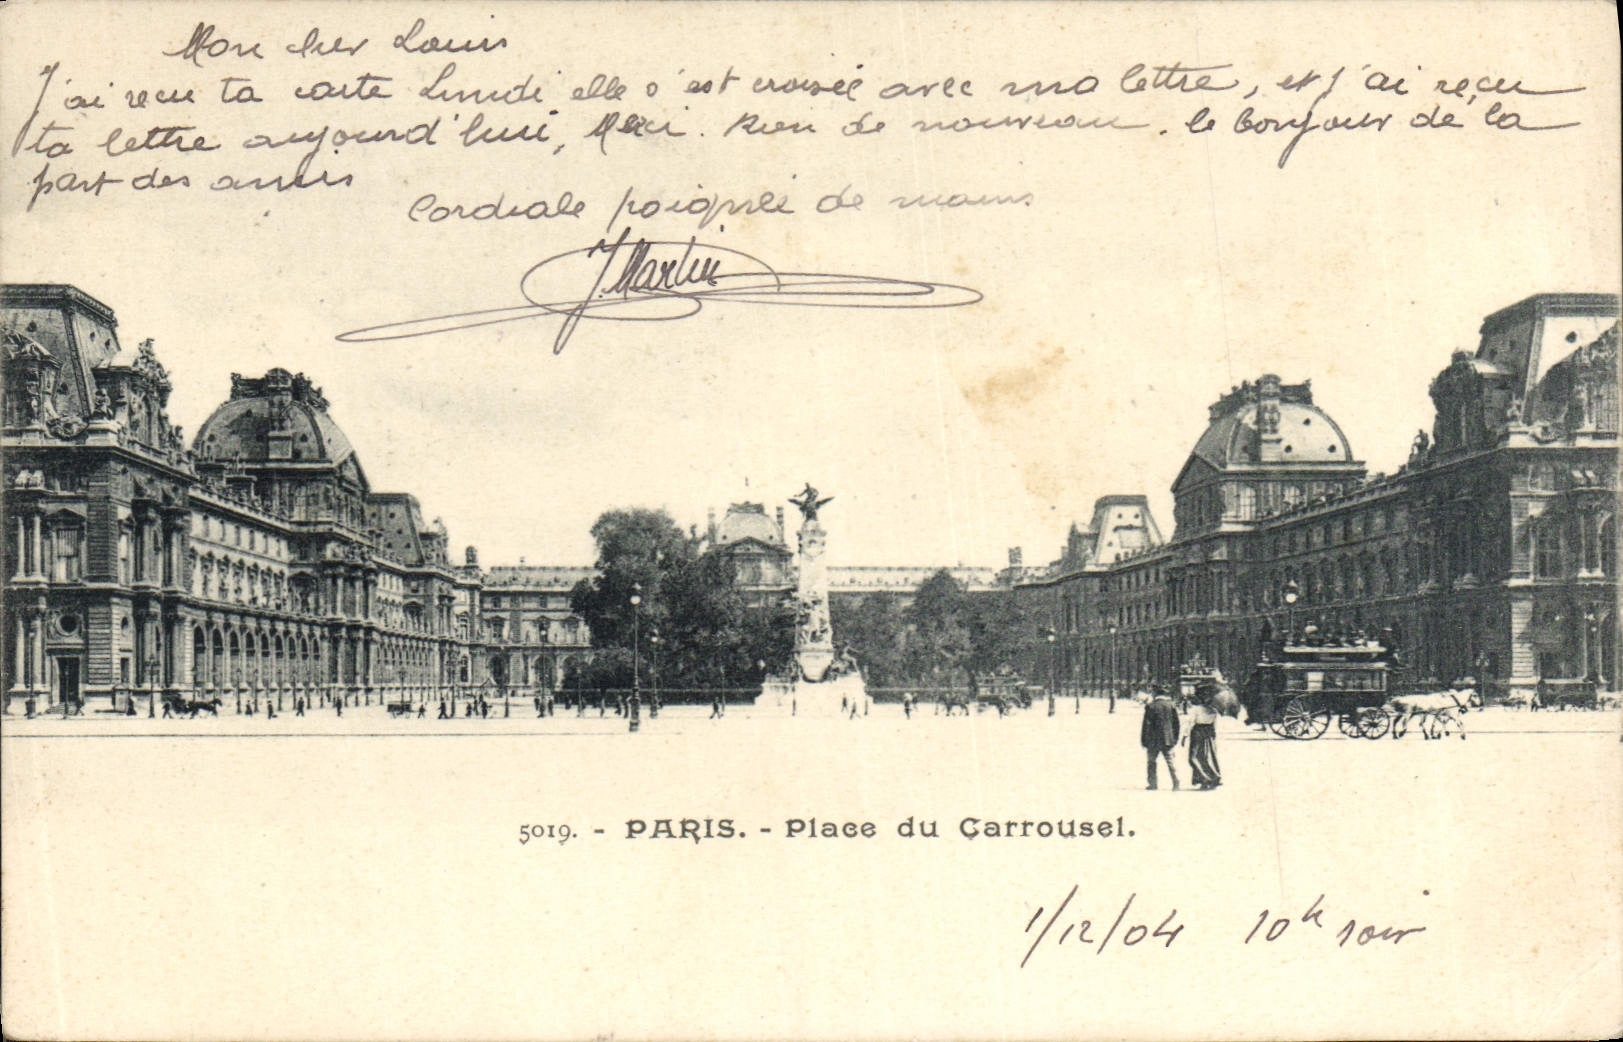 Mon cher Louis
J'ai recu ta carte Lundi elle s'est croisée avec ma lettre, et j'ai reçu
ta lettre aujourd'hui, Merci. Rien de nouveau. le bonjour de la
part des amis
Cordiale poignée de mains
J. Martin
5019. - PARIS. - Place du Carrousel.
1/12/04 10h soir